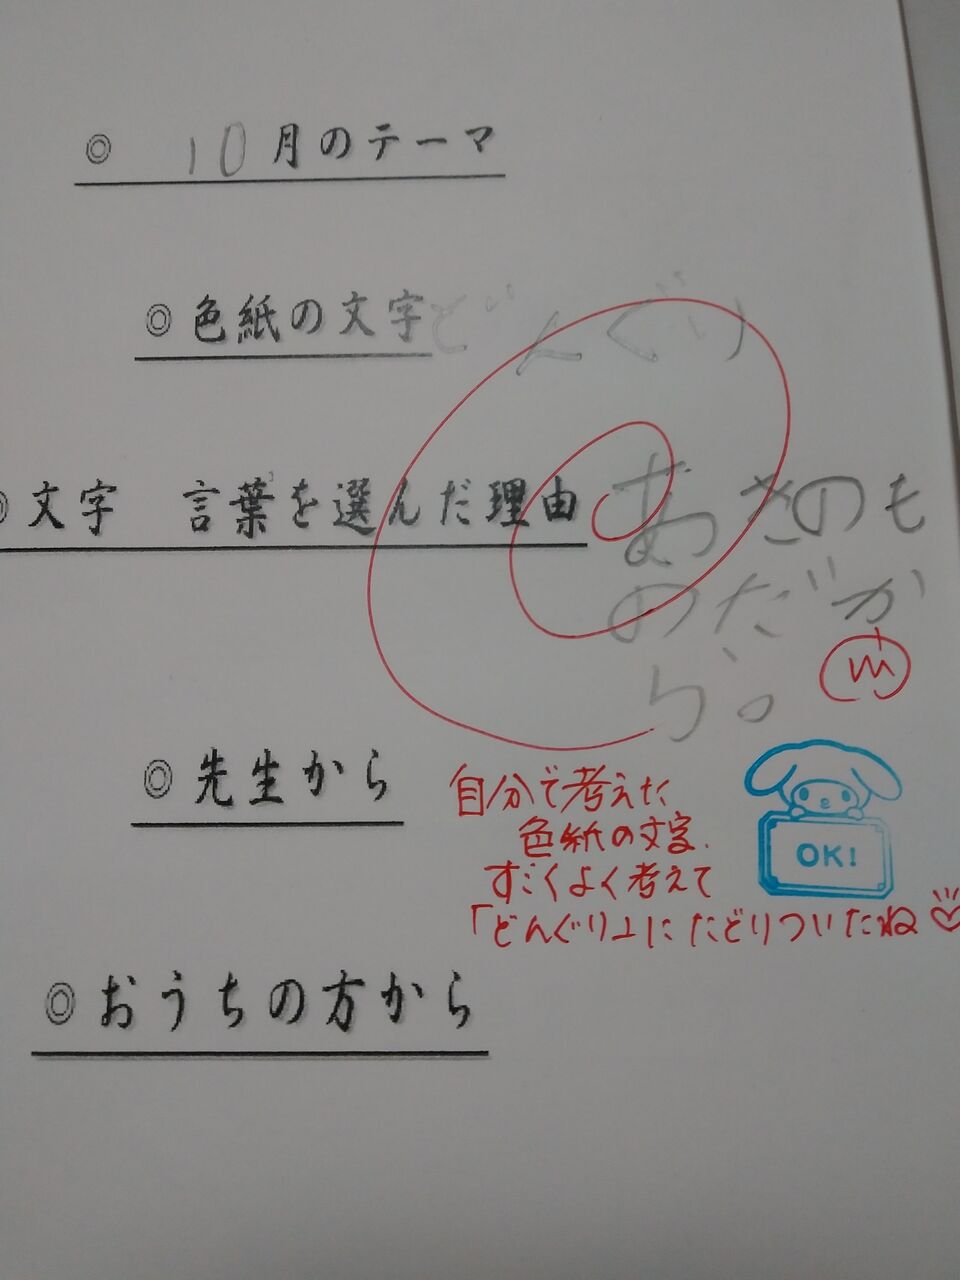 ◎ 10月のテーマ
◎ 色紙の文字 どんぐり
◎ 文字 言葉を選んだ理由 あきのも
のだか
ら。
◎ 先生から
自分で考えた
色紙の文字、
すごくよく考えて
「どんぐり」にたどりついたね♡
OK!
◎ おうちの方から